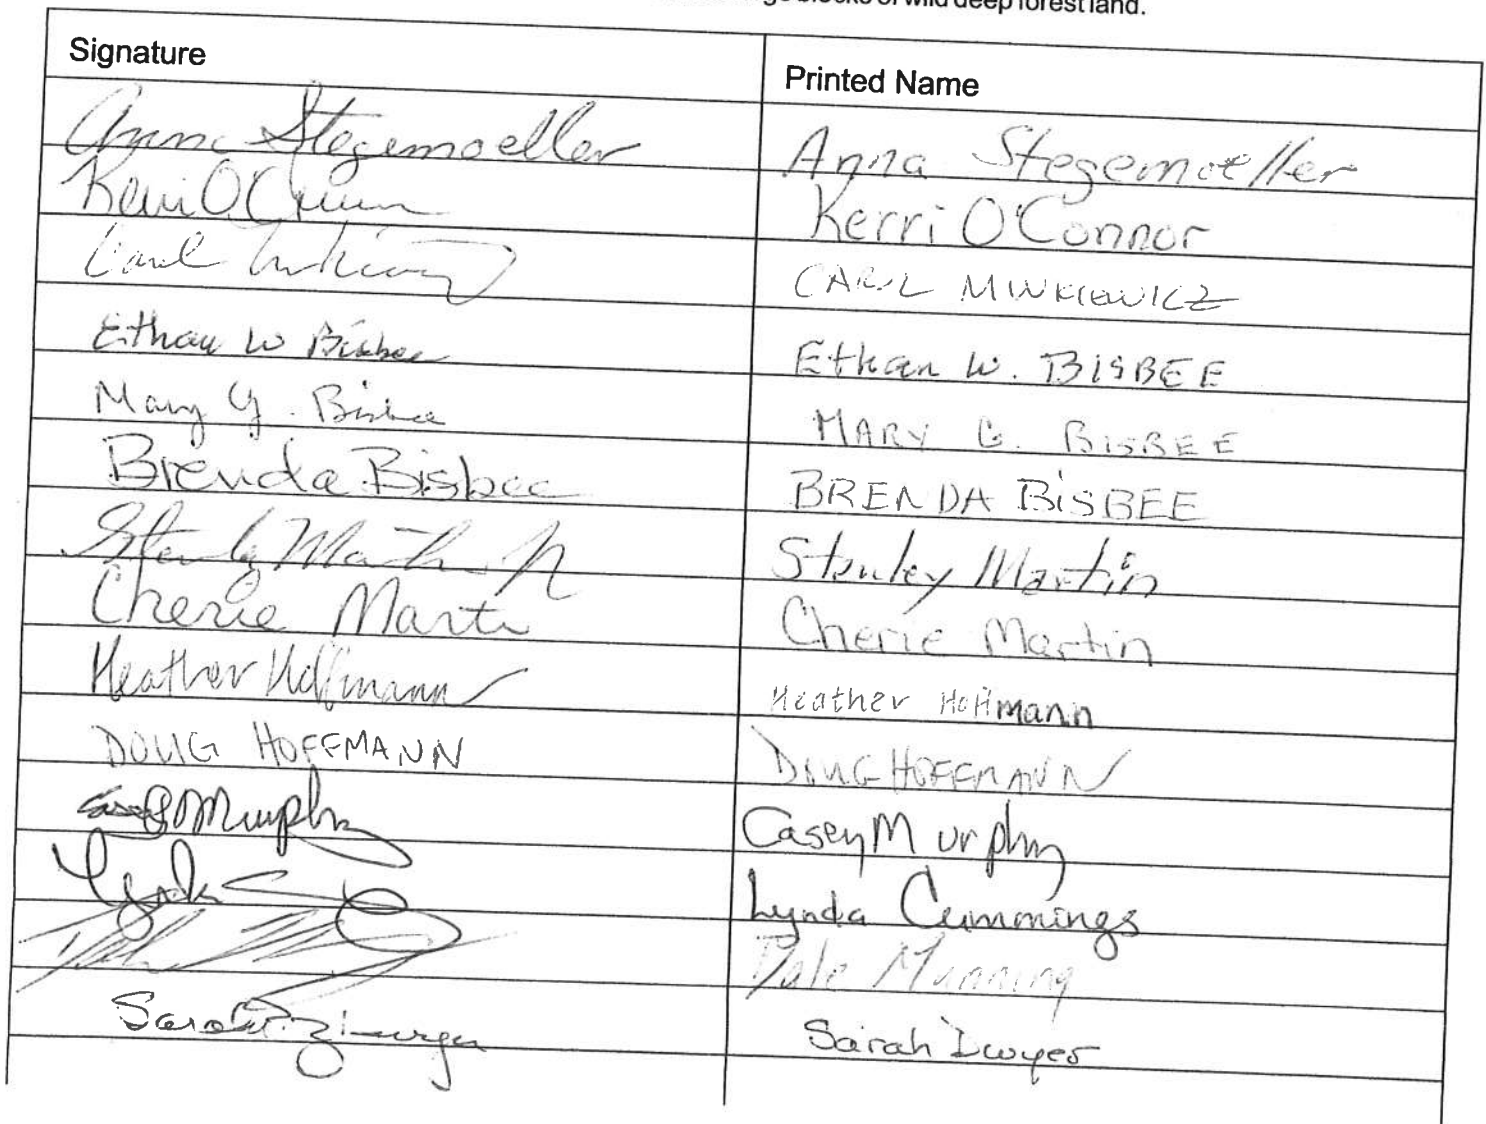 blocks of wild deep forest land.
Signature Printed Name
Anna Stegemoeller Anna Stegemoeller
Kerri O'Connor Kerri O'Connor
Carol CAROL MINKIEWICZ
Ethan W Bisbee Ethan W. BISBEE
Mary G. Bisbee MARY G. BISBEE
Brenda Bisbee BRENDA BISBEE
Stanley Martin Jr Stanley Martin
Cherie Martin Cherie Martin
Heather Hoffmann Heather Hoffmann
DOUG HOFFMANN DOUG HOFFMANN
Casey Murphy Casey Murphy
Lynda Cummings
Dale Manning
Sarah Sarah Dwyer